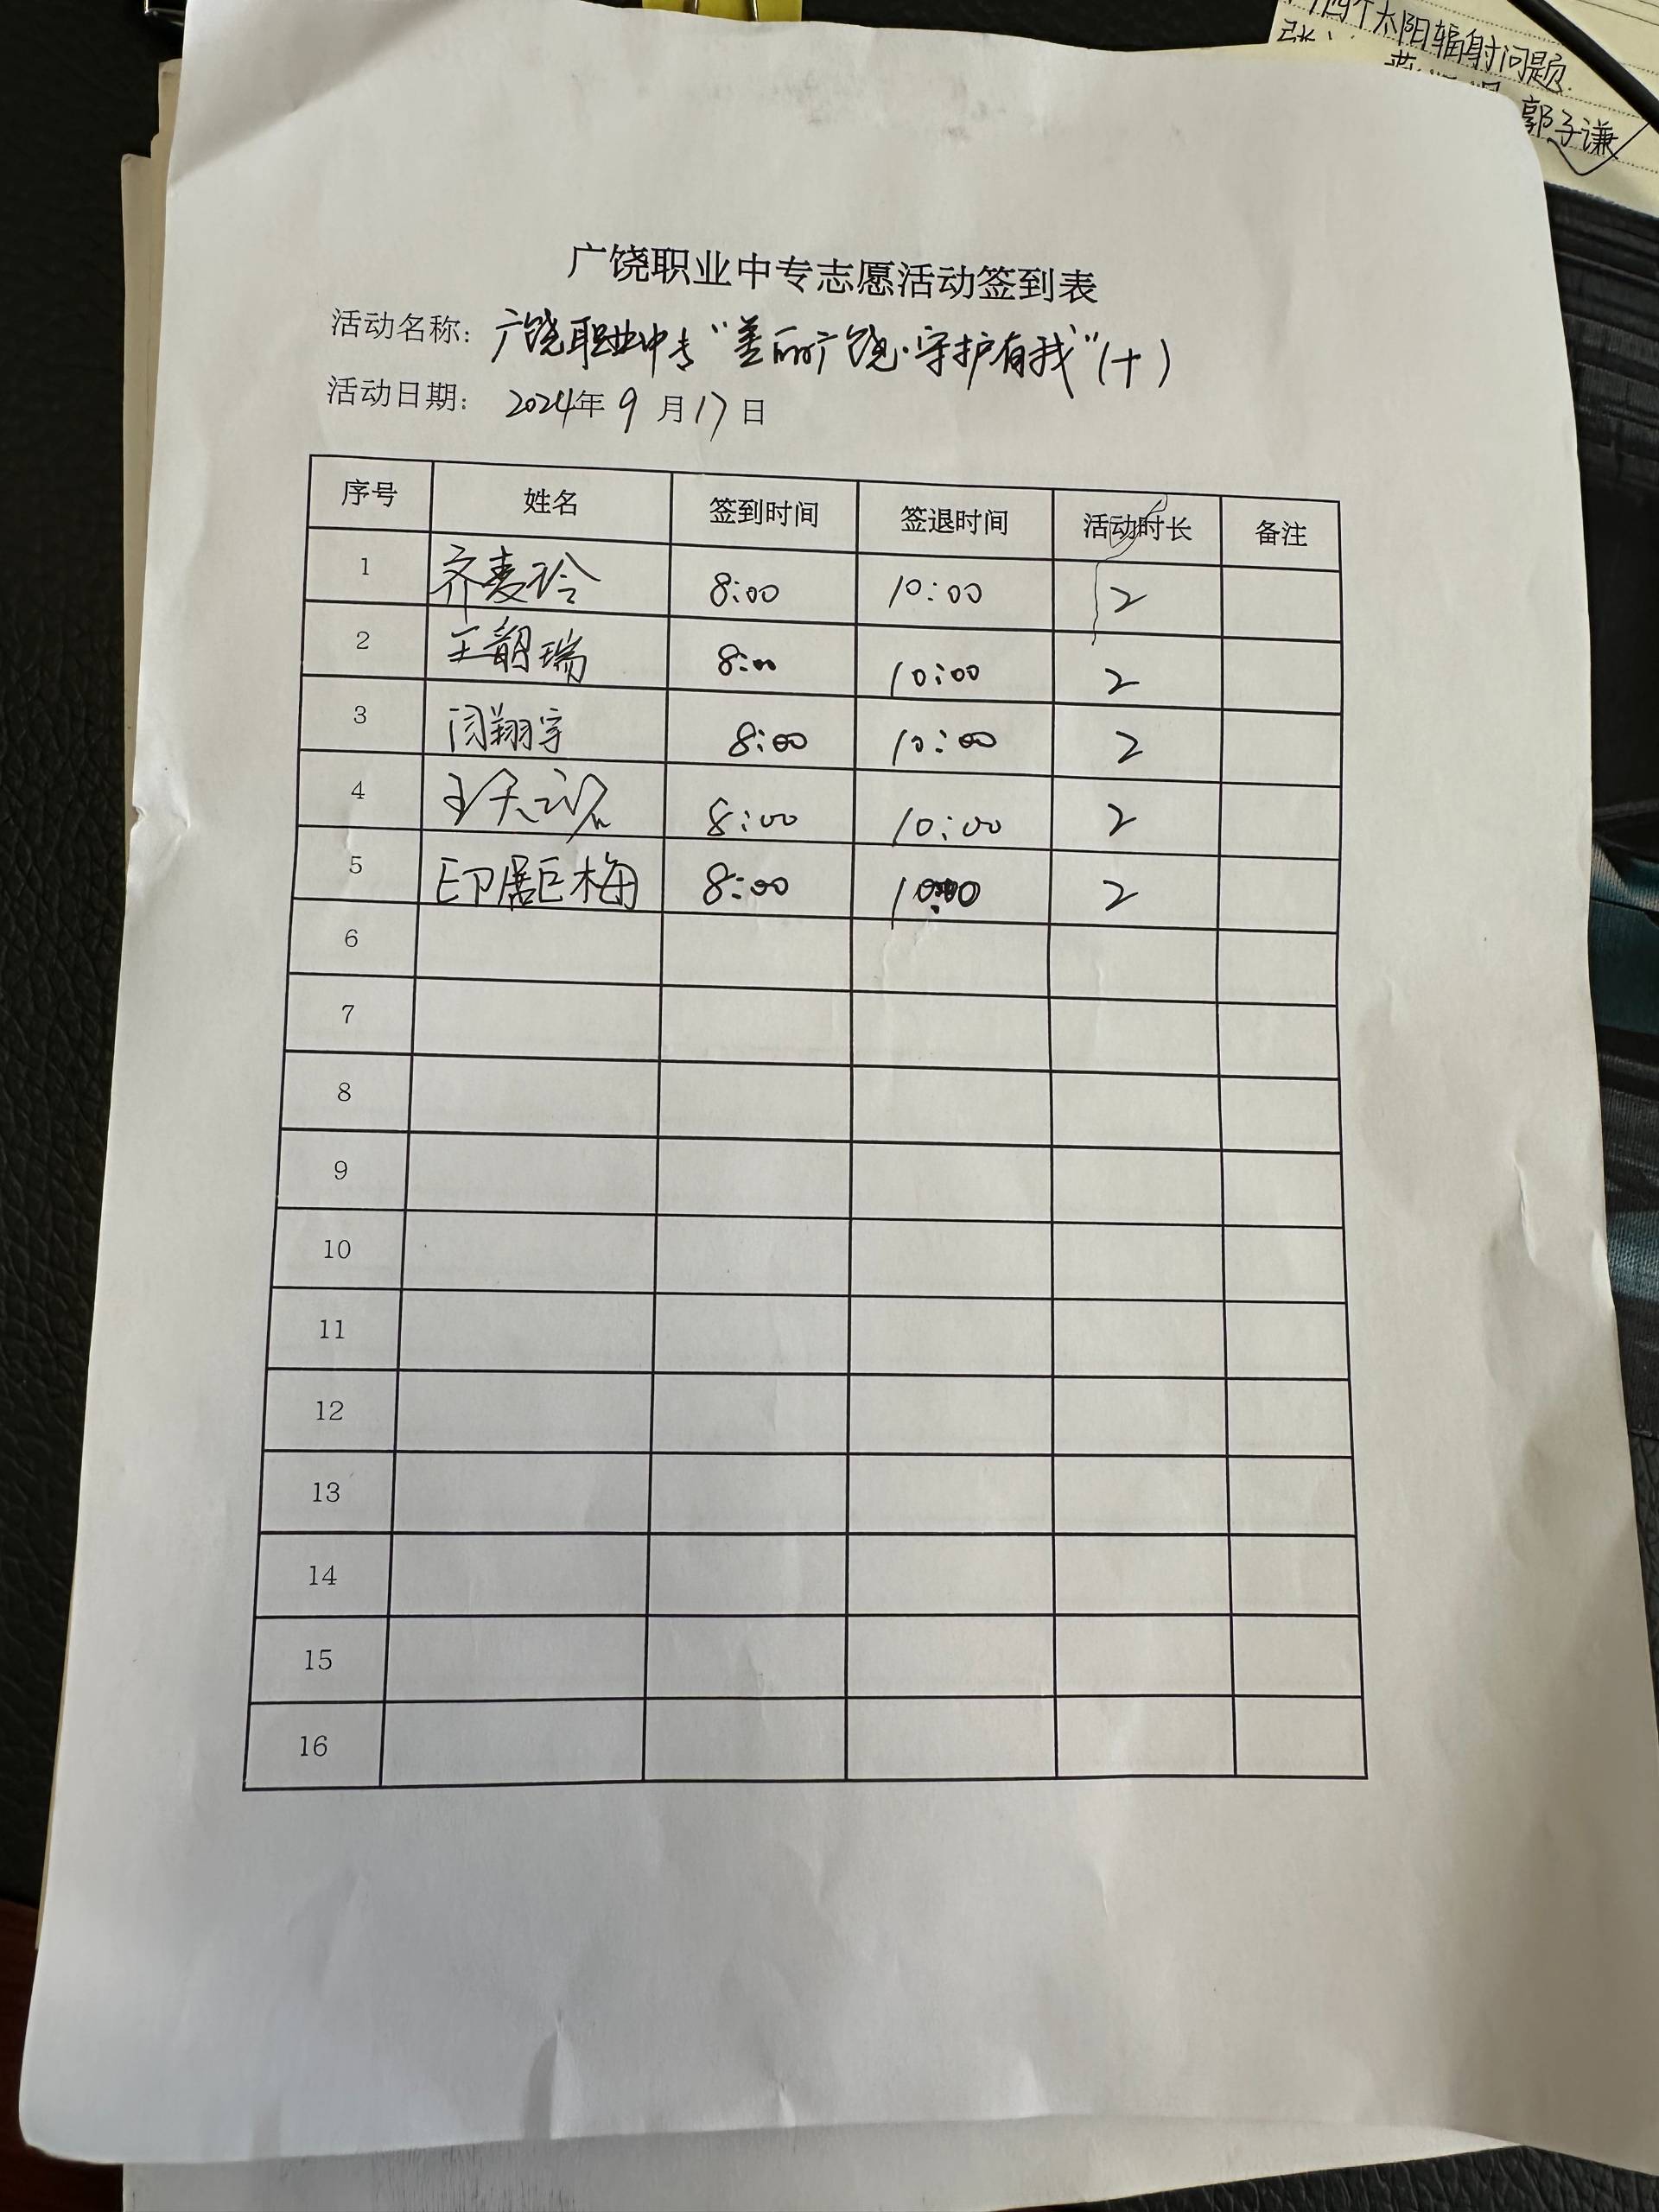 个太阳辐射问题
郭子谦
广饶职业中专志愿活动签到表
活动名称: 广饶职业中专"美丽广饶·守护有我"(十)
活动日期: 2024年9月17日
序号 姓名 签到时间 签退时间 活动时长 备注
1 齐麦玲 8:00 10:00 2
2 王韶瑞 8:00 10:00 2
3 闫翔宇 8:00 10:00 2
4 8:00 10:00 2
5 8:00 10:00 2
6
7
8
9
10
11
12
13
14
15
16